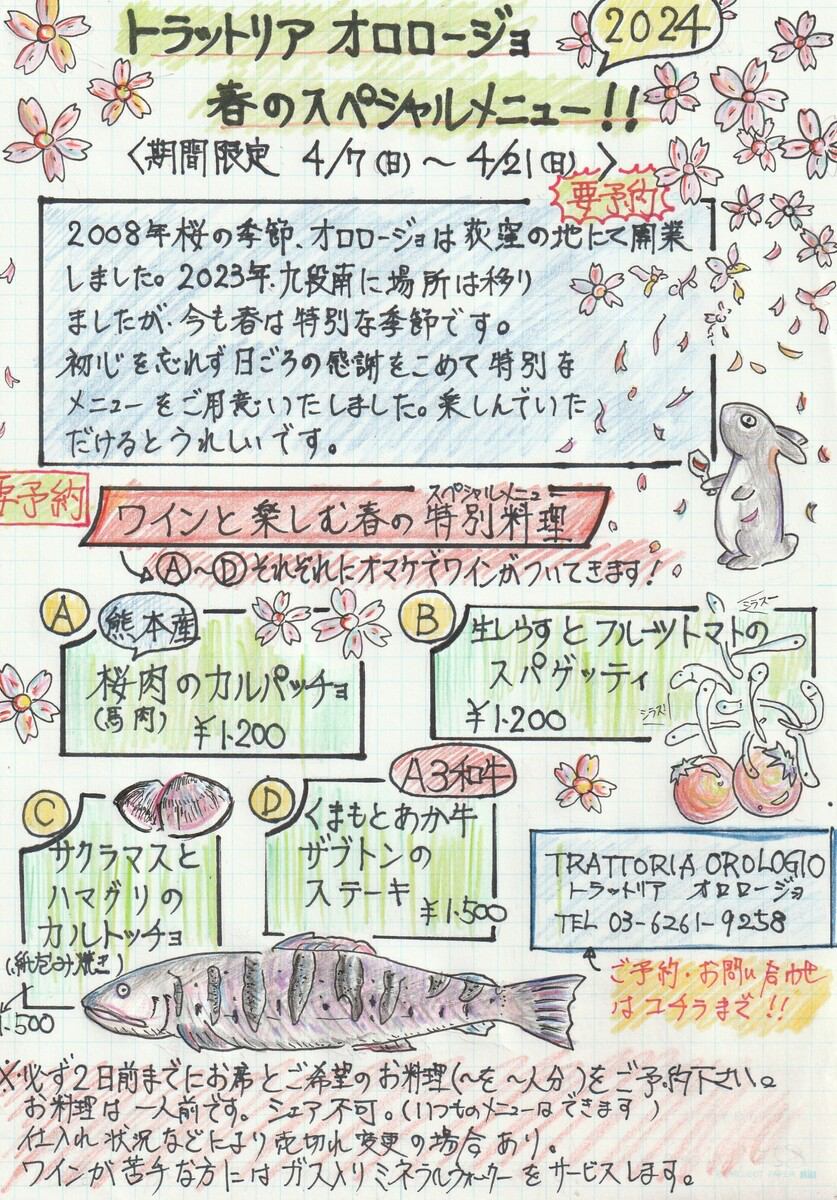 トラットリア オロロージョ
2024
春のスペシャルメニュー!!
〈期間限定 4/7(日)〜4/21(日)〉
要予約
2008年桜の季節、オロロージョは荻窪の地にて開業
しました。2023年、九段南に場所は移り
ましたが、今も春は特別な季節です。
初心を忘れず日ごろの感謝をこめて特別な
メニューをご用意いたしました。楽しんでいた
だけるとうれしいです。
要予約
スペシャルメニュー
ワインと楽しむ春の特別料理
Ⓐ〜Ⓓそれぞれにオマケでワインがついてきます!
A
熊本産
桜肉のカルパッチョ
(馬肉) ¥1.200
B
生しらすとフルーツトマトの
スパゲッティ
¥1.200
シラス〜
シラス!
C
サクラマスと
ハマグリの
カルトッチョ
(紙包み焼き)
1.500
D
A3和牛
くまもとあか牛
ザブトンの
ステーキ
¥1.500
TRATTORIA OROLOGIO
トラットリア オロロージョ
TEL 03-6261-9258
ご予約・お問い合わせ
はコチラまで!!
※必ず2日前までにお席とご希望のお料理(〜を〜人分)をご予約下さい。
お料理は一人前です。シェア不可。(いつものメニューはできます)
仕入れ状況などにより売切れ変更の場合あり。
ワインが苦手な方にはガス入りミネラルウォーターをサービスします。